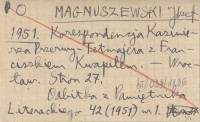 O MAGNUSZEWSKI Józef
1951. Korespondencja Kazimie-
rza Przerwy-Tetmajera z Fran-
ciszkiem Kvapilem. — Wroc-
ław. Stron 27.
Odbitka z Pamiętnika
Literackiego 42 (1951) nr 1.